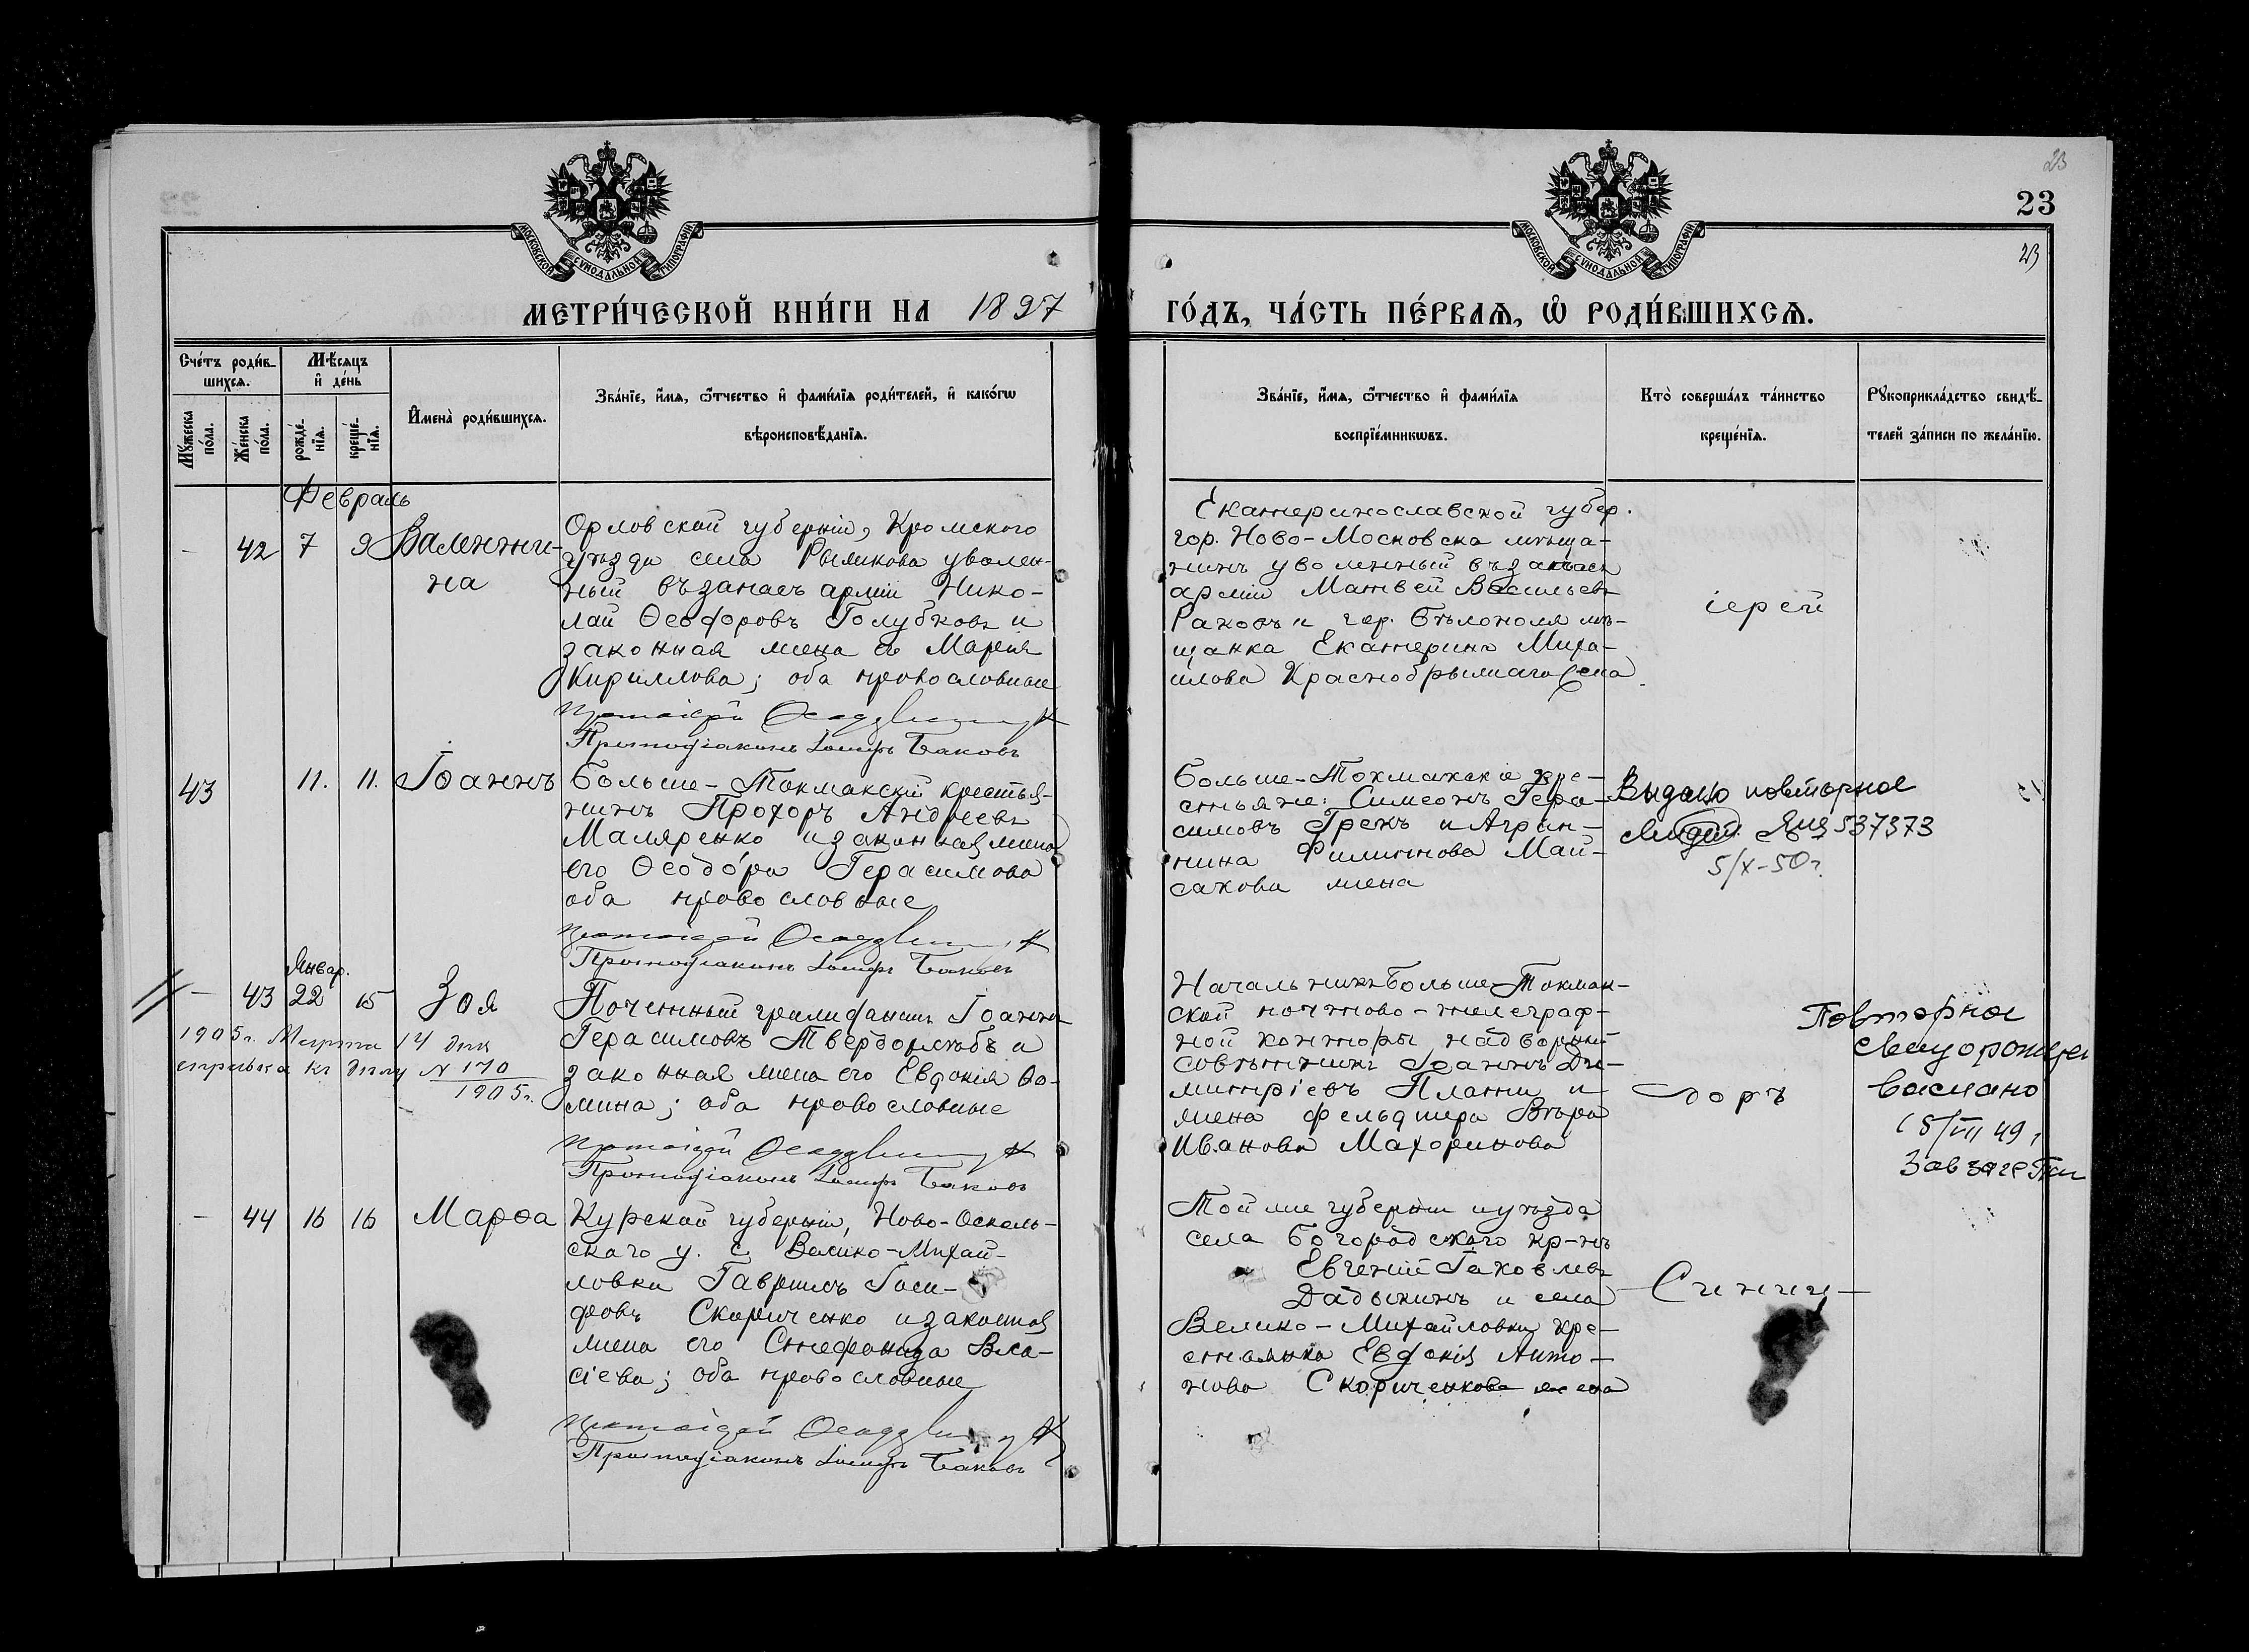 23
23
МОСКОВСКОЙ СѴНОДАЛЬНОЙ ТИПОГРАФІИ
МОСКОВСКОЙ СѴНОДАЛЬНОЙ ТИПОГРАФІИ
23
МЕТРИ́ЧЕСКОЙ КНИ́ГИ НА 1897
ГО́ДЪ, ЧА́СТЬ ПЕ́РВАѦ, Ѡ РОДИ́ВШИХСѦ.
Сче́тъ роди́в-
шихсѧ.
Мꙋ́жеска
по́ла.
Же́нска
по́ла.
Мѣ́сѧцъ
и҆ де́нь
рожде́-
нїѧ.
креще́-
нїѧ.
И҆мена̀ роди́вшихсѧ.
Зва́нїе, и҆́мѧ, ѻ҆́тчество и҆ фами́лїѧ роди́телей, и҆ како́гѡ
вѣроисповѣ́данїѧ.
Зва́нїе, и҆́мѧ, ѻ҆́тчество и҆ фами́лїѧ
воспрїе́мникѡвъ.
Кто̀ соверша́лъ та́инство
креще́нїѧ.
Рꙋкоприкла́дство свидѣ́-
телей за́писи по жела́нїю.
Февраль
- 42 7 9 Валенти-
на
Орловской губерніи, Кромского
уѣзда села уволен-
ный въ запасъ арміи Нико-
лай Ѳеодоровъ Голубковъ и
законная жена его Марія
Кириллова; оба православные
Протоіерей
Протодіаконъ Іосифъ Баковъ
Екатеринославской губер.
гор. Ново-Московска мѣща-
нинъ уволенный въ запасъ
арміи Матвей Васильевъ
Раковъ и гор. Бѣлополя мѣ-
щанка Екатерина Миха-
илова жена
іерей
43 11. 11. Іоаннъ
Больше-Токмакскій крестья-
нинъ Прохоръ Андреевъ
Маляренко и законная жена
его Ѳеодора Герасимова
оба православные
Протоіерей
Протодіаконъ Іосифъ Баковъ
Больше-Токмакскіе кре-
стьяне: Симеонъ Гера-
симовъ Грекъ и Агрип-
пина Филиппова Май-
сакова жена
Выдано повторное
537373
5/X-50г.
Январ.
- 43 22 15 Зоя
1905г. Марта 14 дня
справка къ дѣлу N 170
1905г.
Почетный гражданинъ Іоаннъ
Герасимовъ Твердохлѣбъ и
законная жена его Евдокія Ѳо-
мина; оба православные
Протоіерей
Протодіаконъ Іосифъ Баковъ
Начальникъ Больше-Токмак-
ской почтово-телеграф-
ной конторы надворный
совѣтникъ Іоаннъ Ди-
митріевъ и
жена фельдшера Вѣра
Иванова Махоринова
доръ
Повторное
выслано
49
- 44 16 16 Марѳа
Курской губерніи, Ново-Осколь-
скаго у. с. Велико-Михай-
ловки Гавріилъ Іоси-
фовъ Скориченко и законная
жена его Стефанида Вла-
сіева; оба православные
Протоіерей
Протодіаконъ Іосифъ Баковъ
Той же губерніи и уѣзда
села Богородского кр-нъ
Евгеній Яковлевъ
Дадыкинъ и села
Велико-Михайловки кре-
стьянка Евдокія Анто-
нова Скориченкова жена